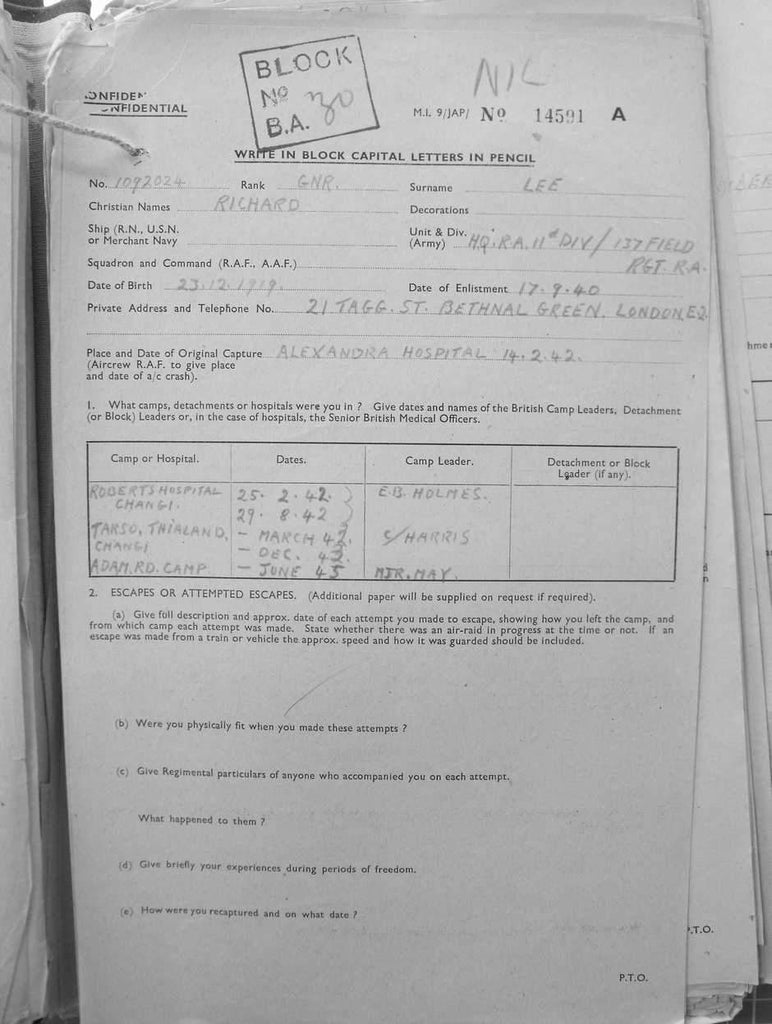 ONFIDEN
NFIDENTIAL
BLOCK
Nº 30
B.A.
NIL
M.I. 9/JAP/ Nº 14591 A
WRITE IN BLOCK CAPITAL LETTERS IN PENCIL
No. 1092024 Rank GNR. Surname LEE
Christian Names RICHARD Decorations
Ship (R.N., U.S.N. or Merchant Navy
Unit & Div. (Army) HQ. R.A. 11th DIV / 137 FIELD
RGT. R.A.
Squadron and Command (R.A.F., A.A.F.)
Date of Birth 23.12.1919. Date of Enlistment 17.9.40
Private Address and Telephone No. 21 TAGG. ST. BETHNAL GREEN. LONDON, E2.
Place and Date of Original Capture ALEXANDRA HOSPITAL 14.2.42.
(Aircrew R.A.F. to give place
and date of a/c crash).
1. What camps, detachments or hospitals were you in ? Give dates and names of the British Camp Leaders, Detachment
(or Block) Leaders or, in the case of hospitals, the Senior British Medical Officers.
Camp or Hospital. Dates. Camp Leader. Detachment or Block
Leader (if any).
ROBERTS HOSPITAL 25. 2. 42. E.B. HOLMES.
CHANGI. 29. 8. 42
TARSO, THIALAND, - MARCH 42. S/HARRIS
CHANGI - DEC. 43.
ADAM. RD. CAMP - JUNE 45 MJR. MAY.
2. ESCAPES OR ATTEMPTED ESCAPES. (Additional paper will be supplied on request if required).
(a) Give full description and approx. date of each attempt you made to escape, showing how you left the camp, and
from which camp each attempt was made. State whether there was an air-raid in progress at the time or not. If an
escape was made from a train or vehicle the approx. speed and how it was guarded should be included.
(b) Were you physically fit when you made these attempts ?
(c) Give Regimental particulars of anyone who accompanied you on each attempt.
What happened to them ?
(d) Give briefly your experiences during periods of freedom.
(e) How were you recaptured and on what date ?
P.T.O.
P.T.O.